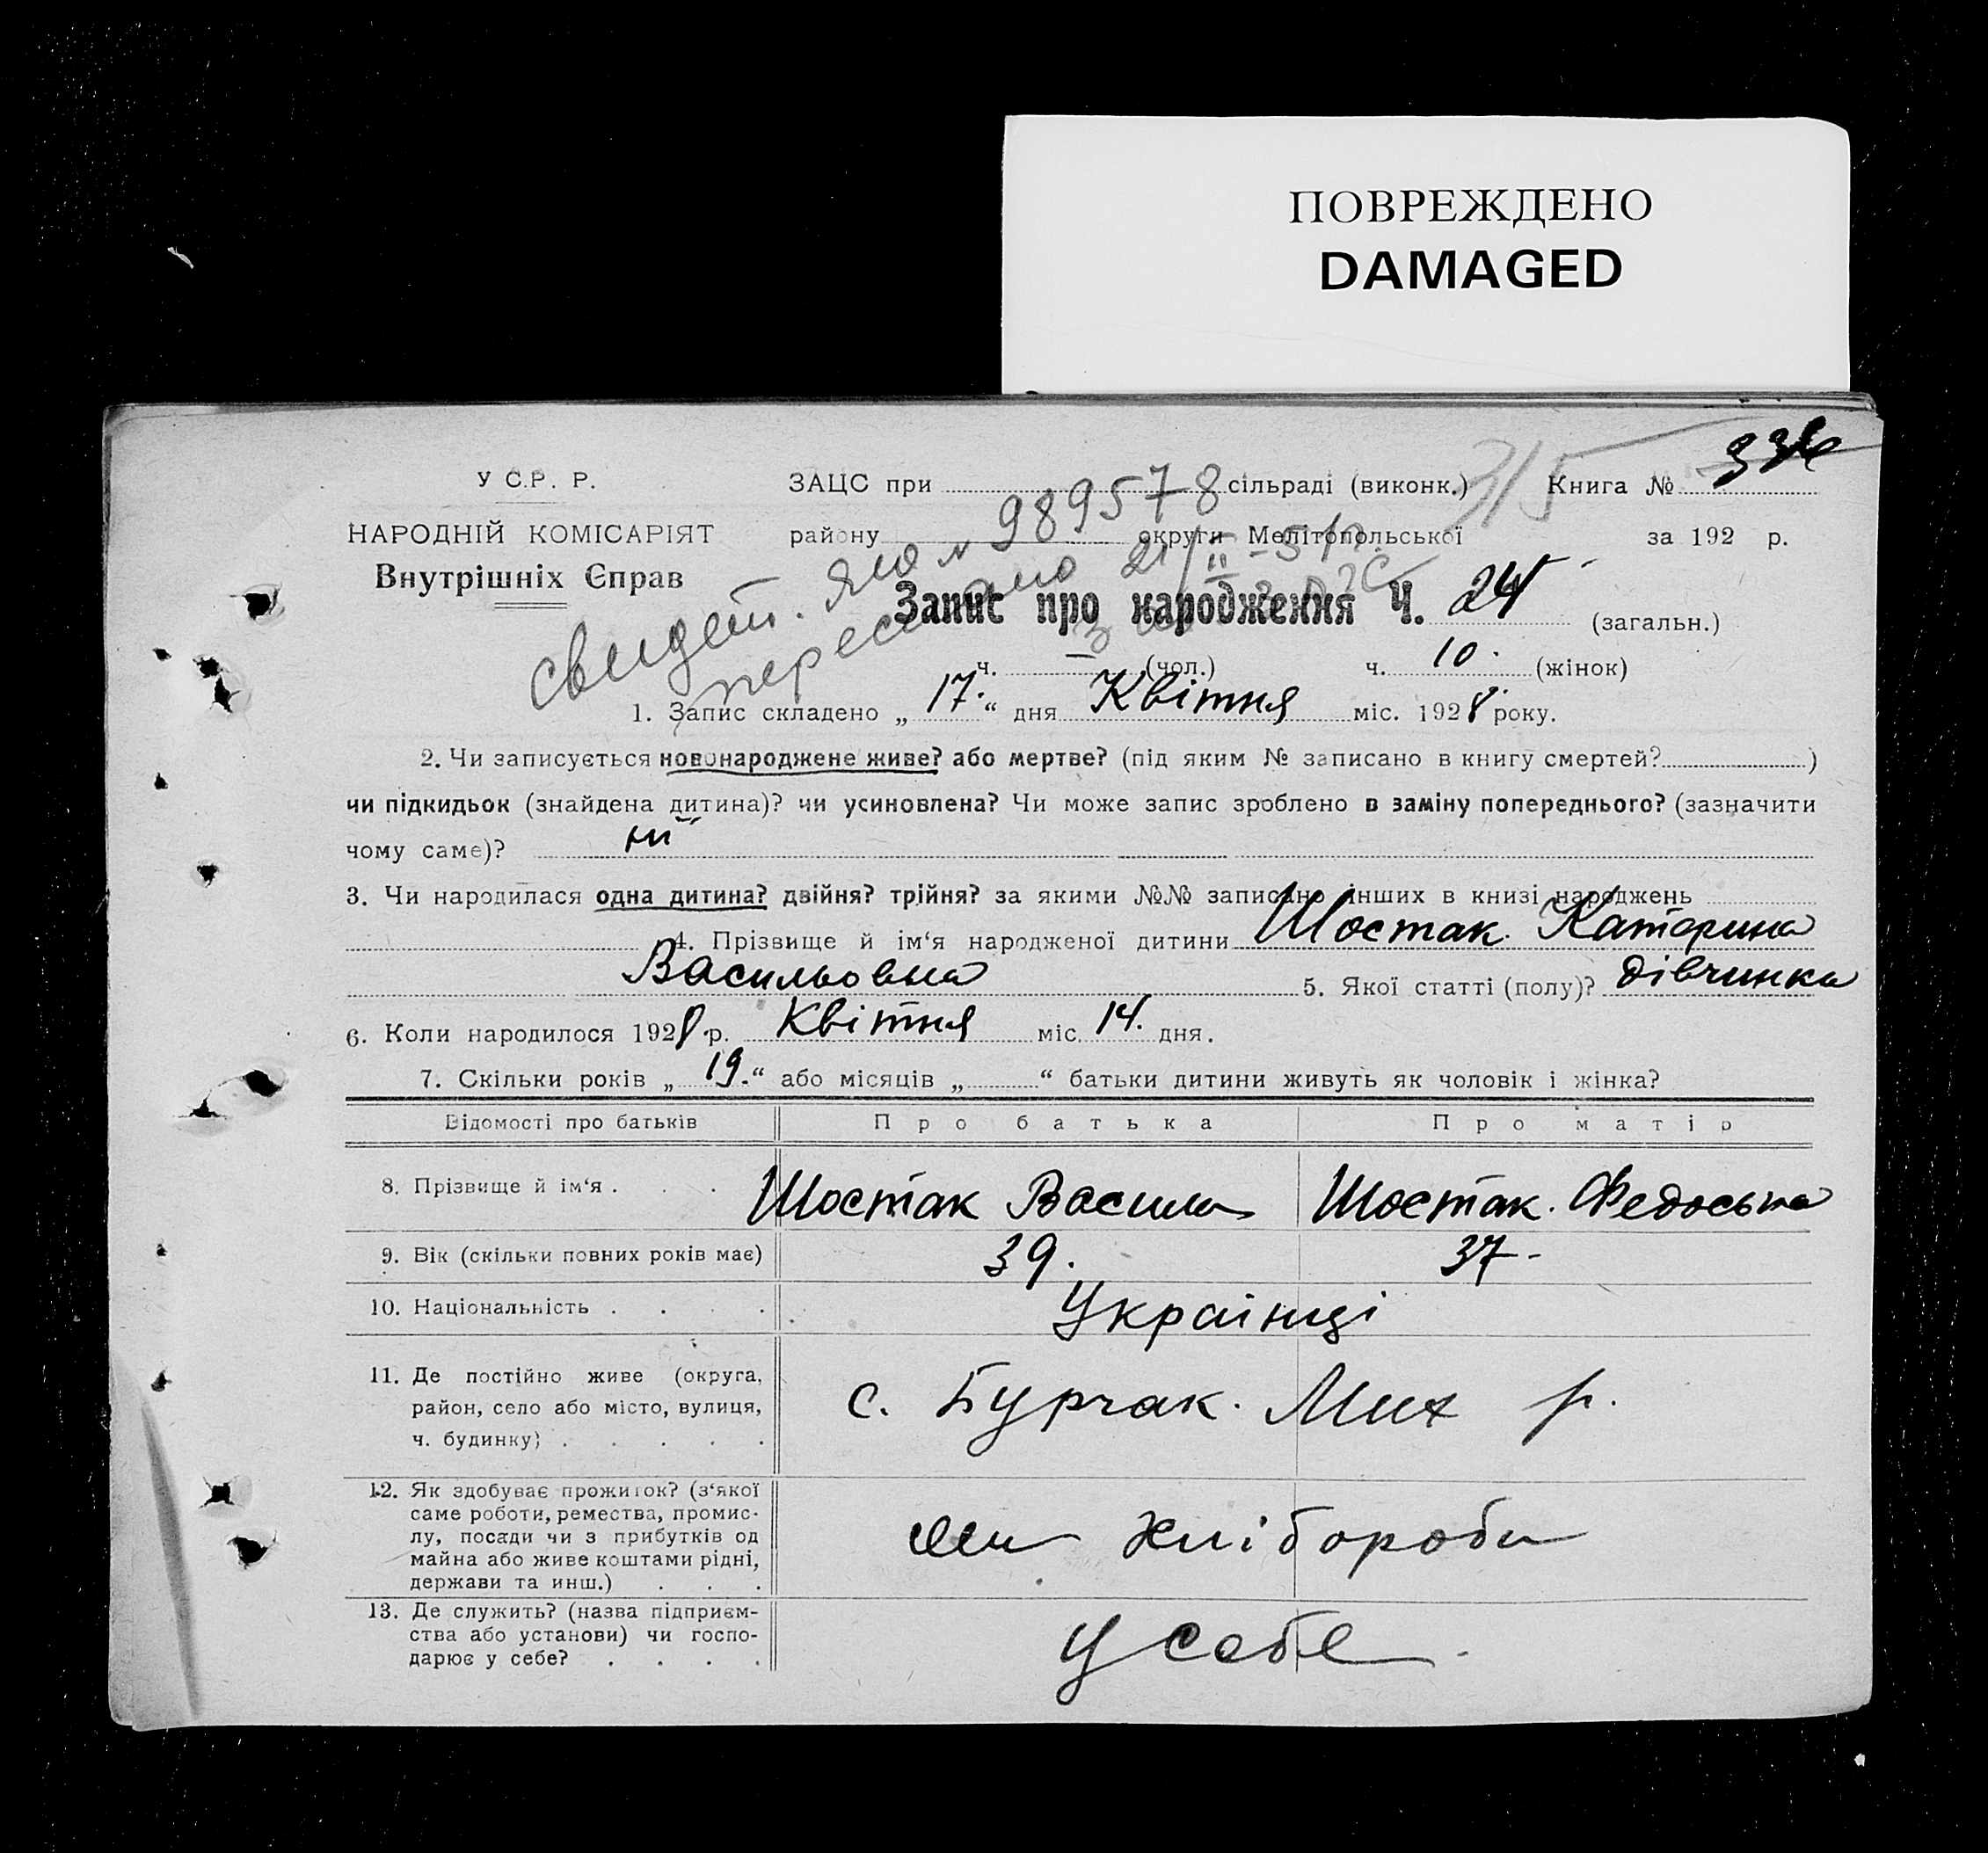 ПОВРЕЖДЕНО
DAMAGED
У С.Р. Р.
ЗАЦС при сільраді (виконк.) Книга №
315
НАРОДНІЙ КОМІСАРІЯТ
району округи Мелітопольської за 192 р.
Внутрішніх Єправ
свидет. ЯЮ № 989578
21/II-51
Запис про народження Ч. 24 (загальн.)
ч. — (чол.) ч. 10. (жінок)
1. Запис складено „ 17. “ дня Квітня міс. 1928 року.
2. Чи записується новонароджене живе? або мертве? (під яким № записано в книгу смертей? )
чи підкидьок (знайдена дитина)? чи усиновлена? Чи може запис зроблено в заміну попереднього? (зазначити
чому саме)?
3. Чи народилася одна дитина? двійня? трійня? за якими №№ записано інших в книзі народжень
4. Прізвище й ім‘я народженої дитини Шостак Катерина
Васильовна 5. Якої статті (полу)? дівчинка
6. Коли народилося 1928 р. Квітня міс. 14. дня.
7. Скільки років „ 19. “ або місяців „ “ батьки дитини живуть як чоловік і жінка?
Відомості про батьків Про батька Про матір
8. Прізвище й ім‘я . . . Шостак Василь Шостак. Федосья
9. Вік (скільки повних років має) 39. 37-
10. Національність . . . . Українці
11. Де постійно живе (округа,
район, село або місто, вулиця,
ч. будинку) . . . . .
с. Бурчак. Мих р.
12. Як здобуває прожиток? (з‘якої
саме роботи, ремества, промис-
лу, посади чи з прибутків од
майна або живе коштами рідні,
держави та инш.) . . .
Хлібороби
13. Де служить? (назва підприєм-
ства або установи) чи госпо-
дарює у себе? . . . .
У себе.